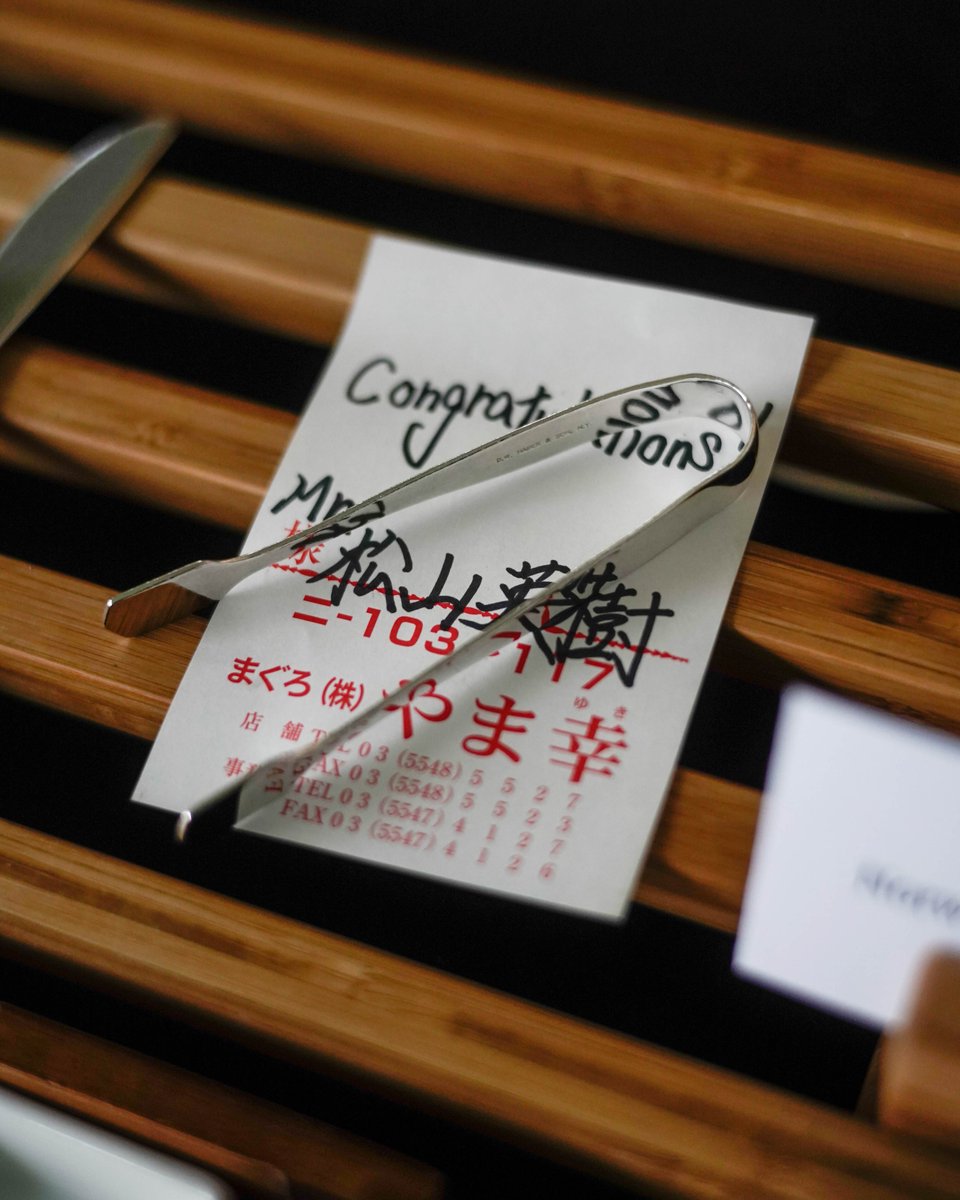 Congratulations
Mr.
様
松山英樹
ニ-103
117
ゆき
まぐろ (株) やま幸
店舗 TEL 03 (5548) 5527
FAX 03 (5548) 5523
TEL 03 (5547) 4127
FAX 03 (5547) 4126